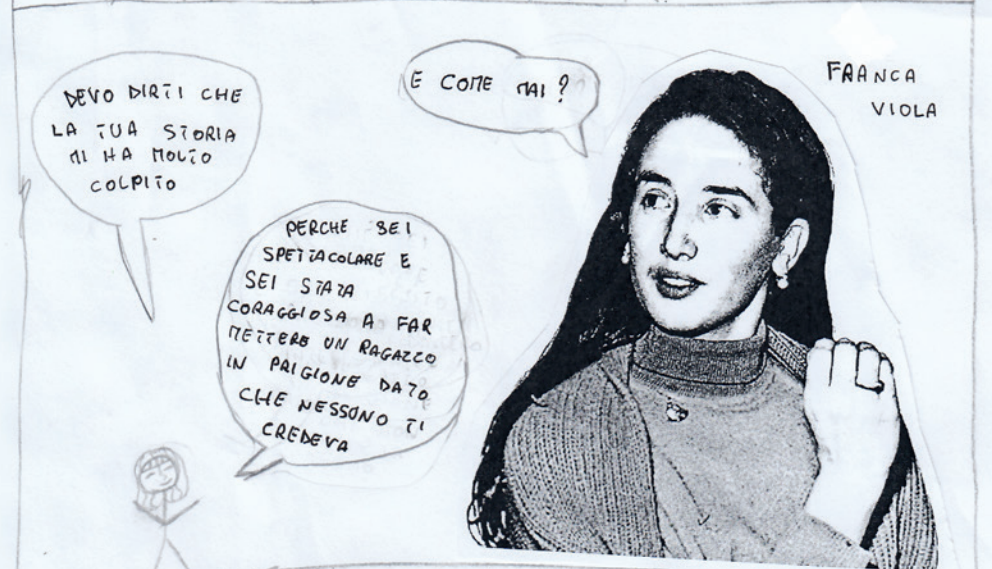 DEVO DIRTI CHE
LA TUA STORIA
MI HA MOLTO
COLPITO
E COME MAI?
FRANCA
VIOLA
PERCHE SEI
SPETTACOLARE E
SEI STATA
CORAGGIOSA A FAR
METTERE UN RAGAZZO
IN PRIGIONE DATO
CHE NESSUNO TI
CREDEVA